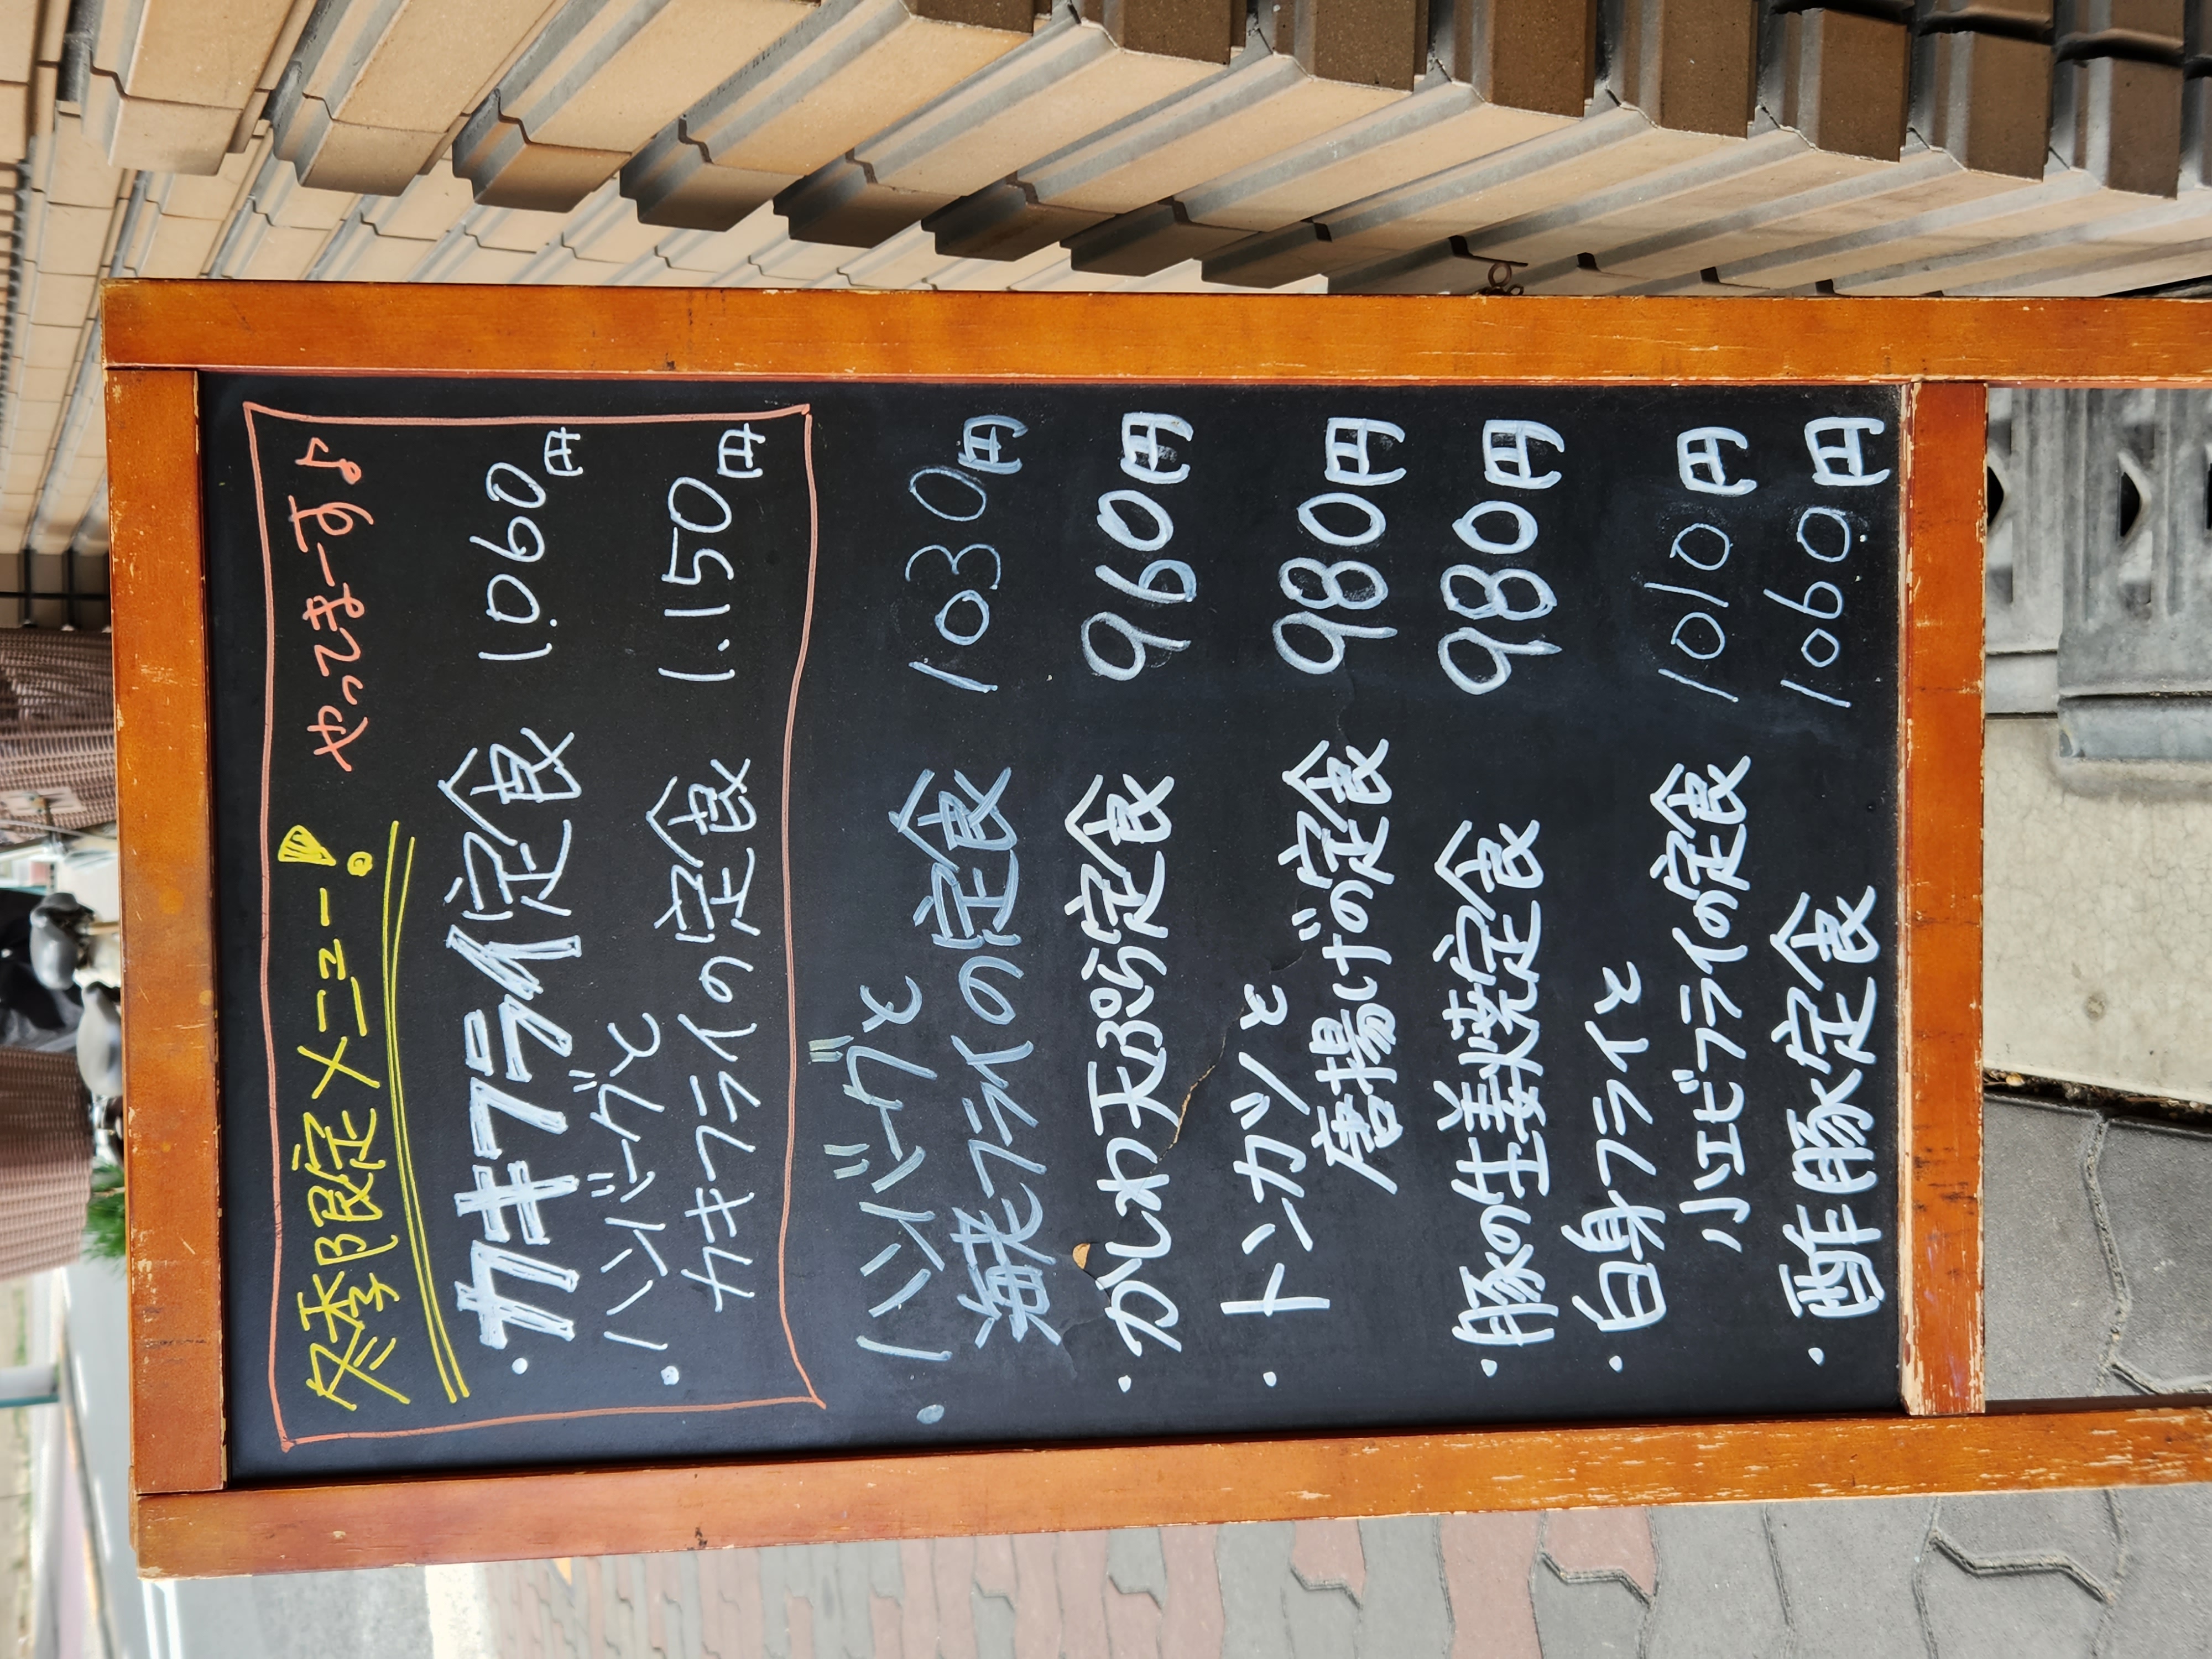 冬季限定メニュー! やってまーす♪
・カキフライ定食 1.060円
・ハンバーグと
カキフライの定食 1.150円
・ハンバーグと
海老フライの定食 1030円
・かしわ天ぷら定食 960円
・トンカツと
唐揚げの定食 980円
・豚の生姜焼定食 980円
・白身フライと
小エビフライの定食 1010円
・酢豚定食 1060円